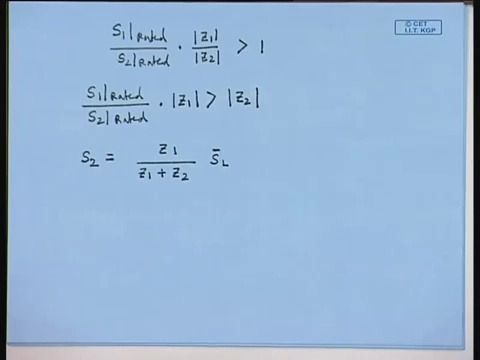 © CET
I.I.T. KGP
S₁|Rated / S₂|Rated · |Z₁| / |Z₂| > 1
S₁|Rated / S₂|Rated · |Z₁| > |Z₂|
S₂ = Z₁ / (Z₁ + Z₂) S̄_L